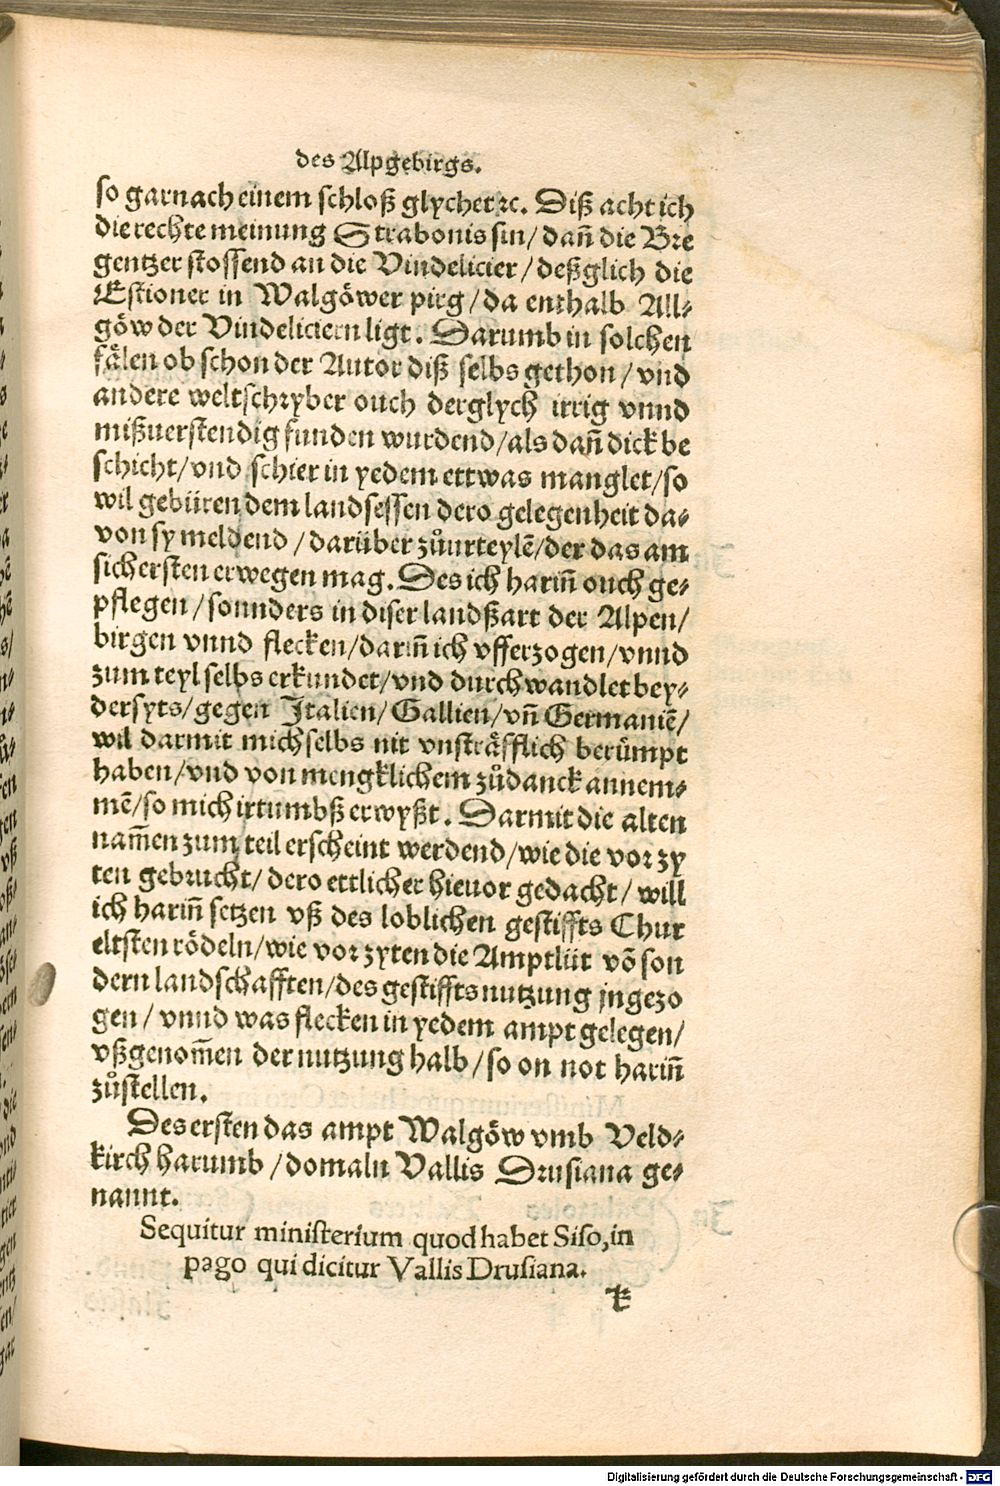 des Alpgebirgs.
so gar nach einem schloß glychet ꝛc. Diß acht ich
die rechte meinung Strabonis sin/ dañ die Bre
gentzer stossend an die Vindelicier/ deßglich die
Estioner in Walgöwer pirg/ da enthalb All⸗
göw der Vindeliciern ligt. Darumb in solchen
fälen ob schon der Autor diß selbs gethon/ vnd
andere weltschryber ouch derglych irrig vnnd
mißuerstendig funden wurdend/ als dañ dick be
schicht/ vnd schier in yedem ettwas manglet/ so
wil gebüren dem landsessen dero gelegenheit da⸗
von sy meldend/ darüber zůurteylẽ/ der das am
sichersten erwegen mag. Des ich hariñ ouch ge⸗
pflegen/ sonnders in diser landßart der Alpen/
birgen vnnd flecken/ dariñ ich vfferzogen/ vnnd
zum teyl selbs erkundet/ vnd durchwandlet bey⸗
dersyts/ gegen Italien/ Gallien/ vñ Germaniẽ/
wil darmit mich selbs nit vnsträfflich berümpt
haben/ vnd von mengklichem zůdanck annem⸗
mẽ/ so mich irtumbß erwyßt. Darmit die alten
nam̃en zum teil erscheint werdend/ wie die vor zy
ten gebrucht/ dero ettlicher hieuor gedacht/ will
ich hariñ setzen vß des loblichen gestiffts Chur
eltsten rödeln/ wie vor zyten die Amptlüt võ son
dern landschafften/ des gestiffts nutzung jngezo
gen/ vnnd was flecken in yedem ampt gelegen/
vßgenom̃en der nutzung halb/ so on not hariñ
zůstellen.
Des ersten das ampt Walgöw vmb Veld⸗
kirch harumb/ domaln Vallis Drusiana ge⸗
nannt.
Sequitur ministerium quod habet Siso, in
pago qui dicitur Vallis Drusiana.
k
Digitalisierung gefördert durch die Deutsche Forschungsgemeinschaft - DFG